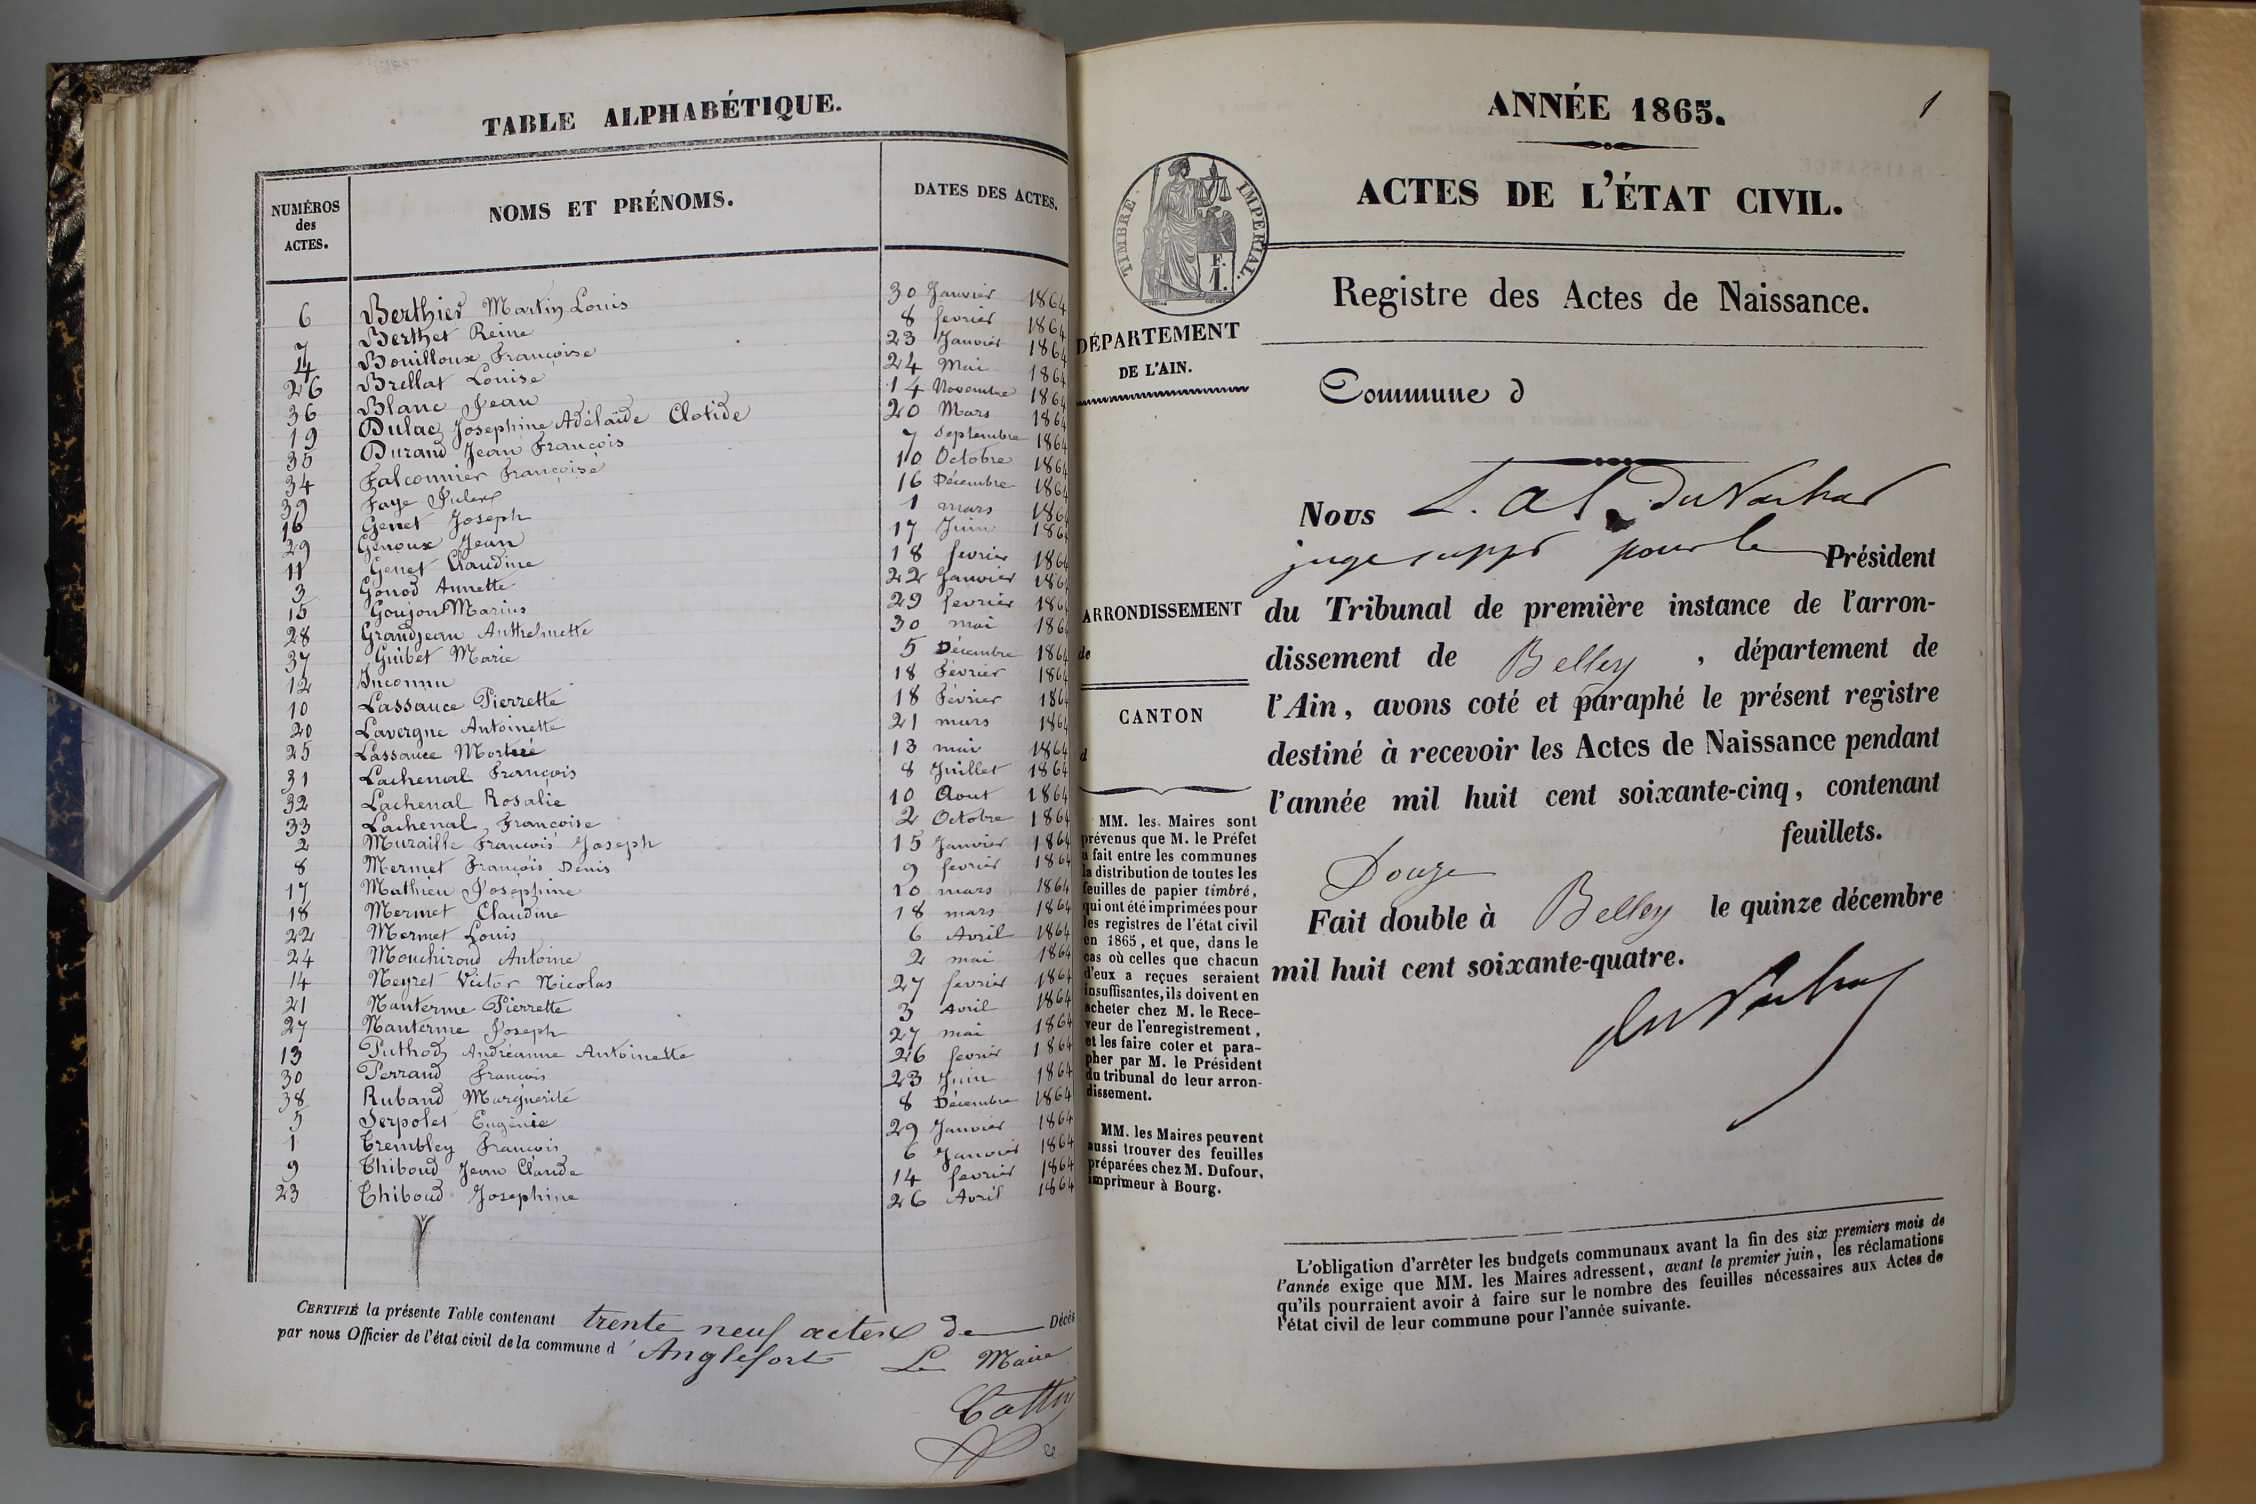 TABLE ALPHABÉTIQUE.
NUMÉROS des ACTES. NOMS ET PRÉNOMS. DATES DES ACTES.
6 Berthier Martin Louis 30 Janvier 1864
7 Berthet Reine 8 fevrier 1864
4 Bouilloux Françoise 23 Janvier 1864
26 Brellat Louise 24 Mai 1864
36 Blanc Jean 14 Novembre 1864
19 Dulac Josephine Adélaïde Clotide 20 Mars 1864
35 Durand Jean François 7 Septembre 1864
34 Falconnier Françoise 10 Octobre 1864
39 Faye Jules 16 Décembre 1864
16 Genet Joseph 1 mars 1864
29 Genoux Jean 17 Juin 1864
11 Genet Claudine 18 fevrier 1864
3 Gonod Annette 22 Janvier 1864
15 Goujon Marius 29 fevrier 1864
28 Grandjean Anthelmette 30 mai 1864
37 Guibet Marie 5 Décembre 1864
12 Inconnu 18 Février 1864
10 Lassauce Pierrette 18 Février 1864
20 Lavergne Antoinette 21 mars 1864
25 Lassauce 13 mai 1864
31 Lachenal François 8 Juillet 1864
32 Lachenal Rosalie 10 Aout 1864
33 Lachenal Françoise 2 Octobre 1864
2 Muraille François Joseph 15 Janvier 1864
8 Mermet François Denis 9 fevrier 1864
17 Mathieu Josephine 10 mars 1864
18 Mermet Claudine 18 mars 1864
22 Mermet Louis 6 Avril 1864
24 Mouchiroud Antoine 2 mai 1864
14 Neyret Victor Nicolas 27 fevrier 1864
21 Nanterme Pierrette 3 Avril 1864
27 Nanterme Joseph 27 mai 1864
13 Puthod Andréanne Antoinette 26 fevrier 1864
30 Perrand François 23 Juin 1864
38 Ruband Marguerite 8 Décembre 1864
5 Serpolet Eugénie 29 Janvier 1864
1 Trembley François 6 Janvier 1864
9 Thiboud Jean Claude 14 fevrier 1864
23 Thiboud Josephine 26 Avril 1864
CERTIFIÉ la présente Table contenant trente neuf actes de Décès
par nous Officier de l'état civil de la commune d'Anglefort Le Maire
1
ANNÉE 1865.
ACTES DE L'ÉTAT CIVIL.
TIMBRE IMPÉRIAL.
F.
1.
Registre des Actes de Naissance.
DÉPARTEMENT
DE L'AIN.
Commune d
ARRONDISSEMENT
de
CANTON
d
Nous
juge supp pour le Président
du Tribunal de première instance de l'arron-
dissement de Belley, département de
l'Ain, avons coté et paraphé le présent registre
destiné à recevoir les Actes de Naissance pendant
l'année mil huit cent soixante-cinq, contenant
Douze feuillets.
Fait double à Belley le quinze décembre
mil huit cent soixante-quatre.
MM. les Maires sont
prévenus que M. le Préfet
a fait entre les communes
la distribution de toutes les
feuilles de papier timbré,
qui ont été imprimées pour
les registres de l'état civil
en 1865, et que, dans le
cas où celles que chacun
d'eux a reçues seraient
insuffisantes, ils doivent en
acheter chez M. le Rece-
veur de l'enregistrement,
et les faire coter et para-
pher par M. le Président
du tribunal de leur arron-
dissement.
MM. les Maires peuvent
aussi trouver des feuilles
préparées chez M. Dufour,
imprimeur à Bourg.
L'obligation d'arrêter les budgets communaux avant la fin des six premiers mois de
l'année exige que MM. les Maires adressent, avant le premier juin, les réclamations
qu'ils pourraient avoir à faire sur le nombre des feuilles nécessaires aux Actes de
l'état civil de leur commune pour l'année suivante.